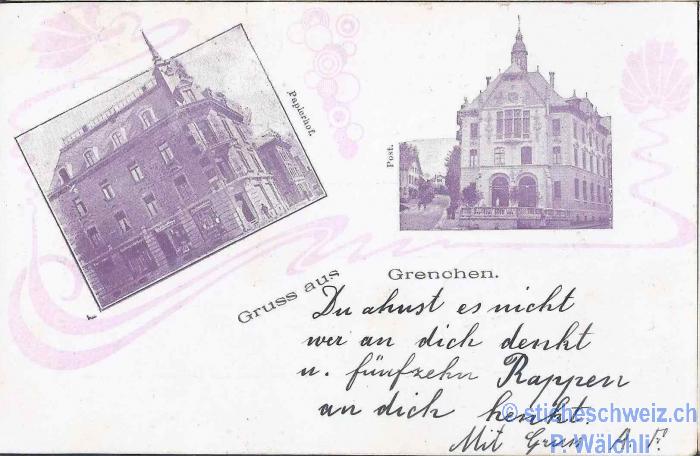 Papierhof.
Post.
Gruss aus Grenchen.
Du ahnst es nicht
wer an dich denkt
u. fünfzehn Rappen
an dich henkt.
Mit Gruss A.
© sticheschweiz.ch
P. Wälchli